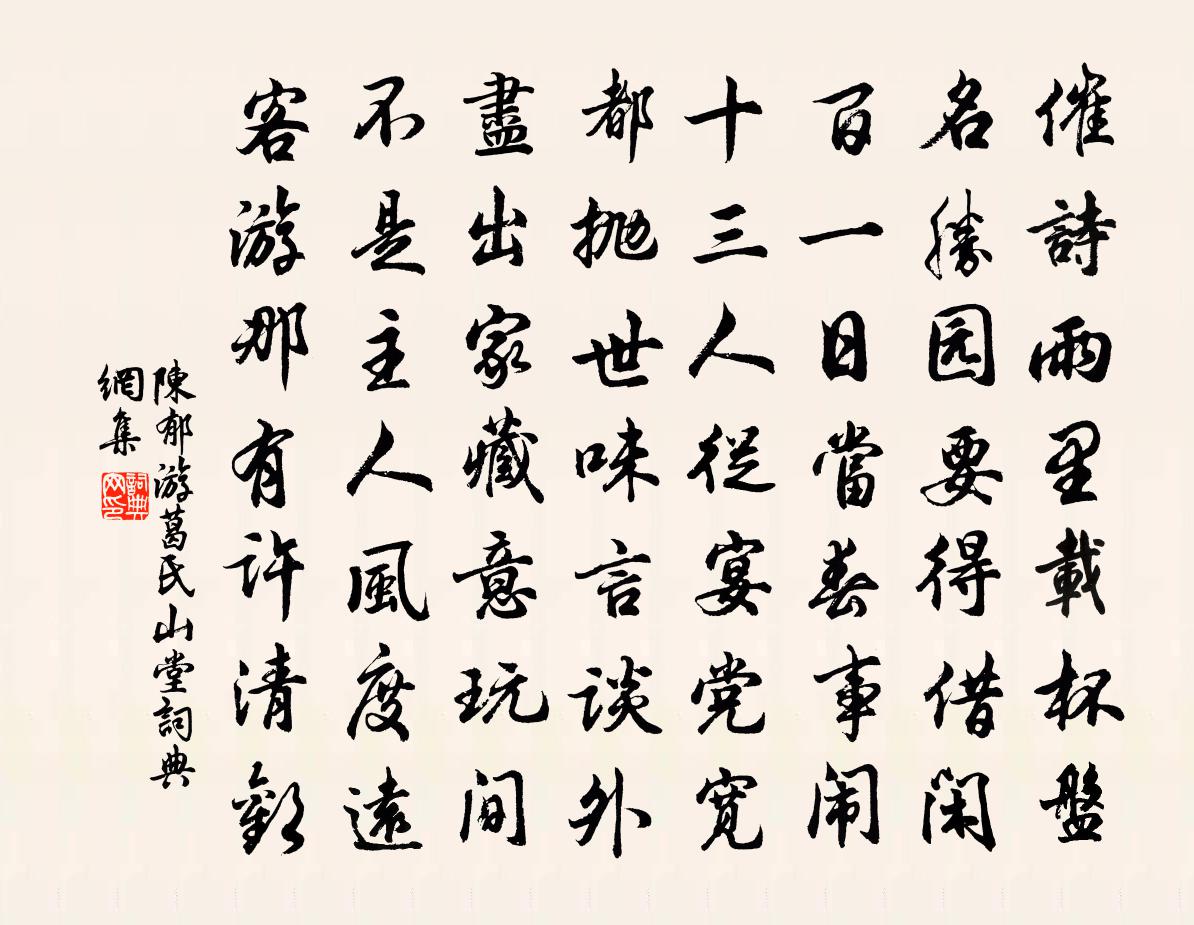 催詩雨里載杯盤
名勝园要得借閑
百一日當春事闹
十三人從宴党寬
都抛世味言谈外
盡出家藏意玩间
不是主人風度遠
客游那有许清歡
陳郁游葛氏山堂詞典
網集
詞典
网印